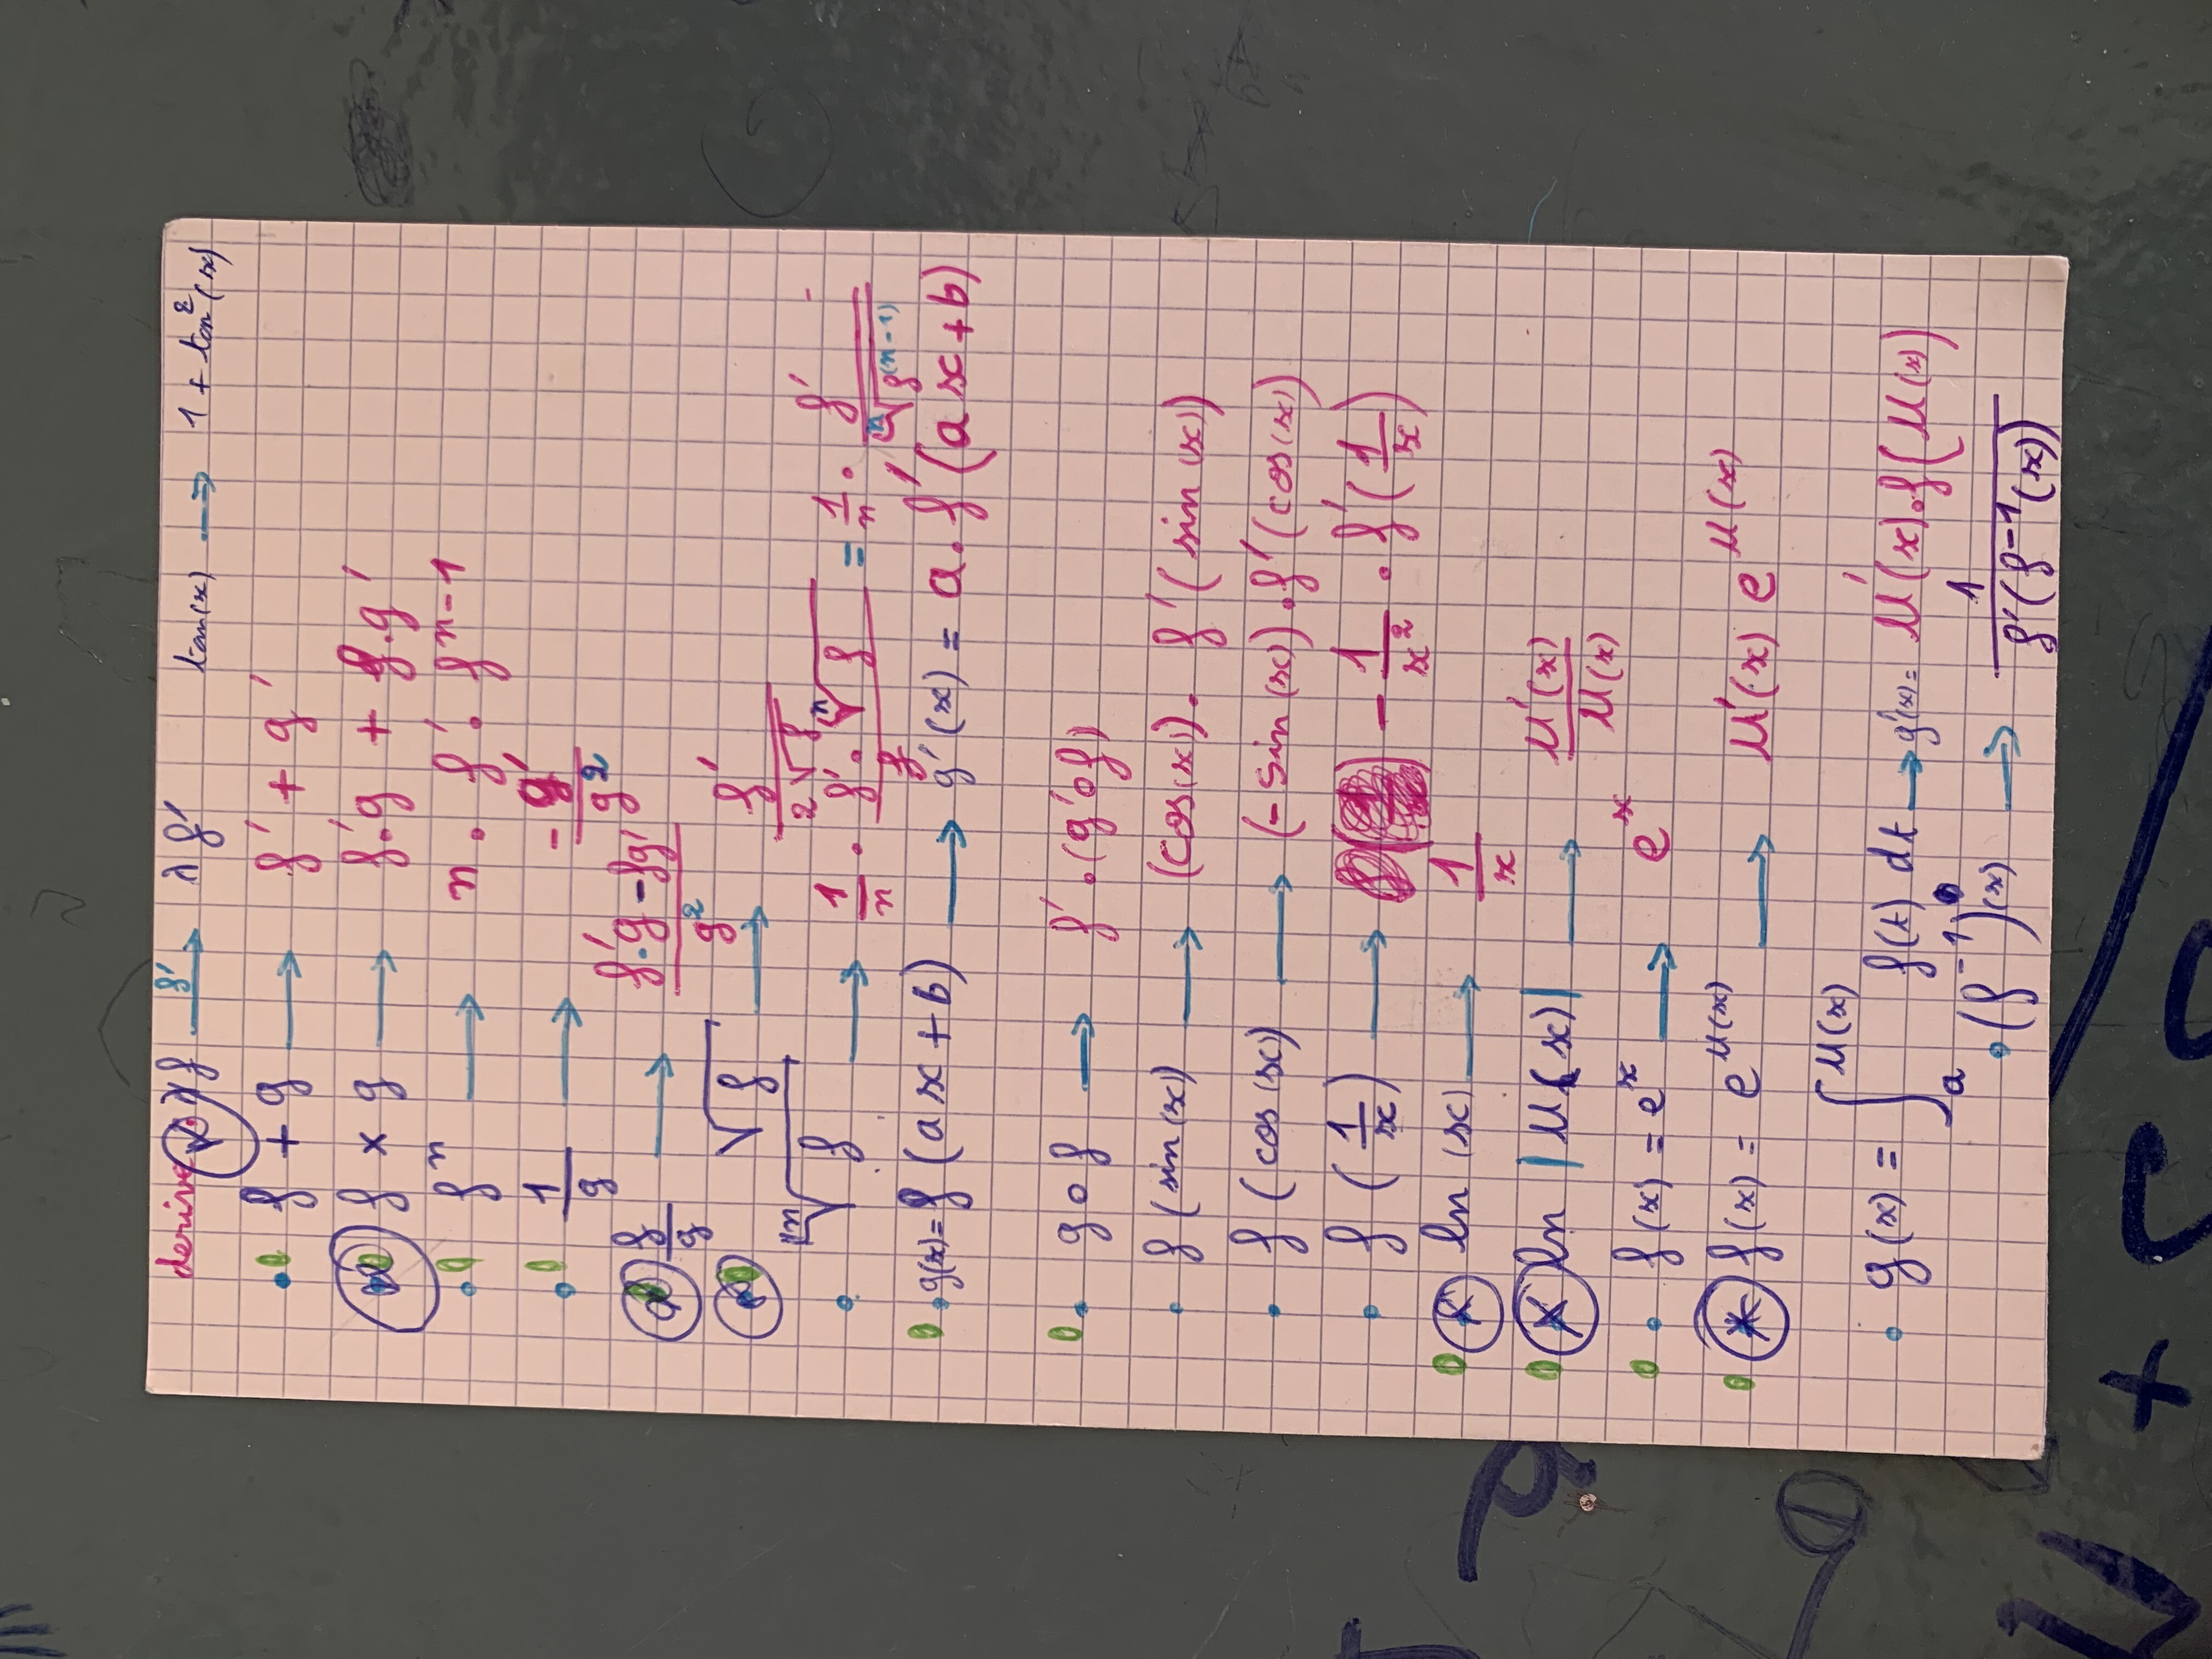 derive λf —f'→ λf' tan(x) → 1 + tan²(x)
• f + g → f' + g'
f × g → f'·g + f·g'
• fⁿ → n · f' · fⁿ⁻¹
• 1/g → -g'/g²
f/g → (f'·g - fg')/g²
√f → f'/(2√f)
• ⁿ√f → 1/n · (f' · ⁿ√f)/f = 1/n · f'/ⁿ√(f⁽ⁿ⁻¹⁾)
• g(x) = f(ax+b) → g'(x) = a · f'(ax+b)
• g∘f → f' · (g'∘f)
• f(sin(x)) → (cos(x)) · f'(sin(x))
• f(cos(x)) → (-sin(x)) · f'(cos(x))
• f(1/x) → -1/x² · f'(1/x)
ln(x) → 1/x
ln |U(x)| → U'(x)/U(x)
• f(x) = eˣ → eˣ
f(x) = e^U(x) → U'(x) e^U(x)
• g(x) = ∫ₐ^U(x) f(t) dt → g'(x) = U'(x) · f(U(x))
• (f⁻¹)(x) → 1/f'(f⁻¹(x))